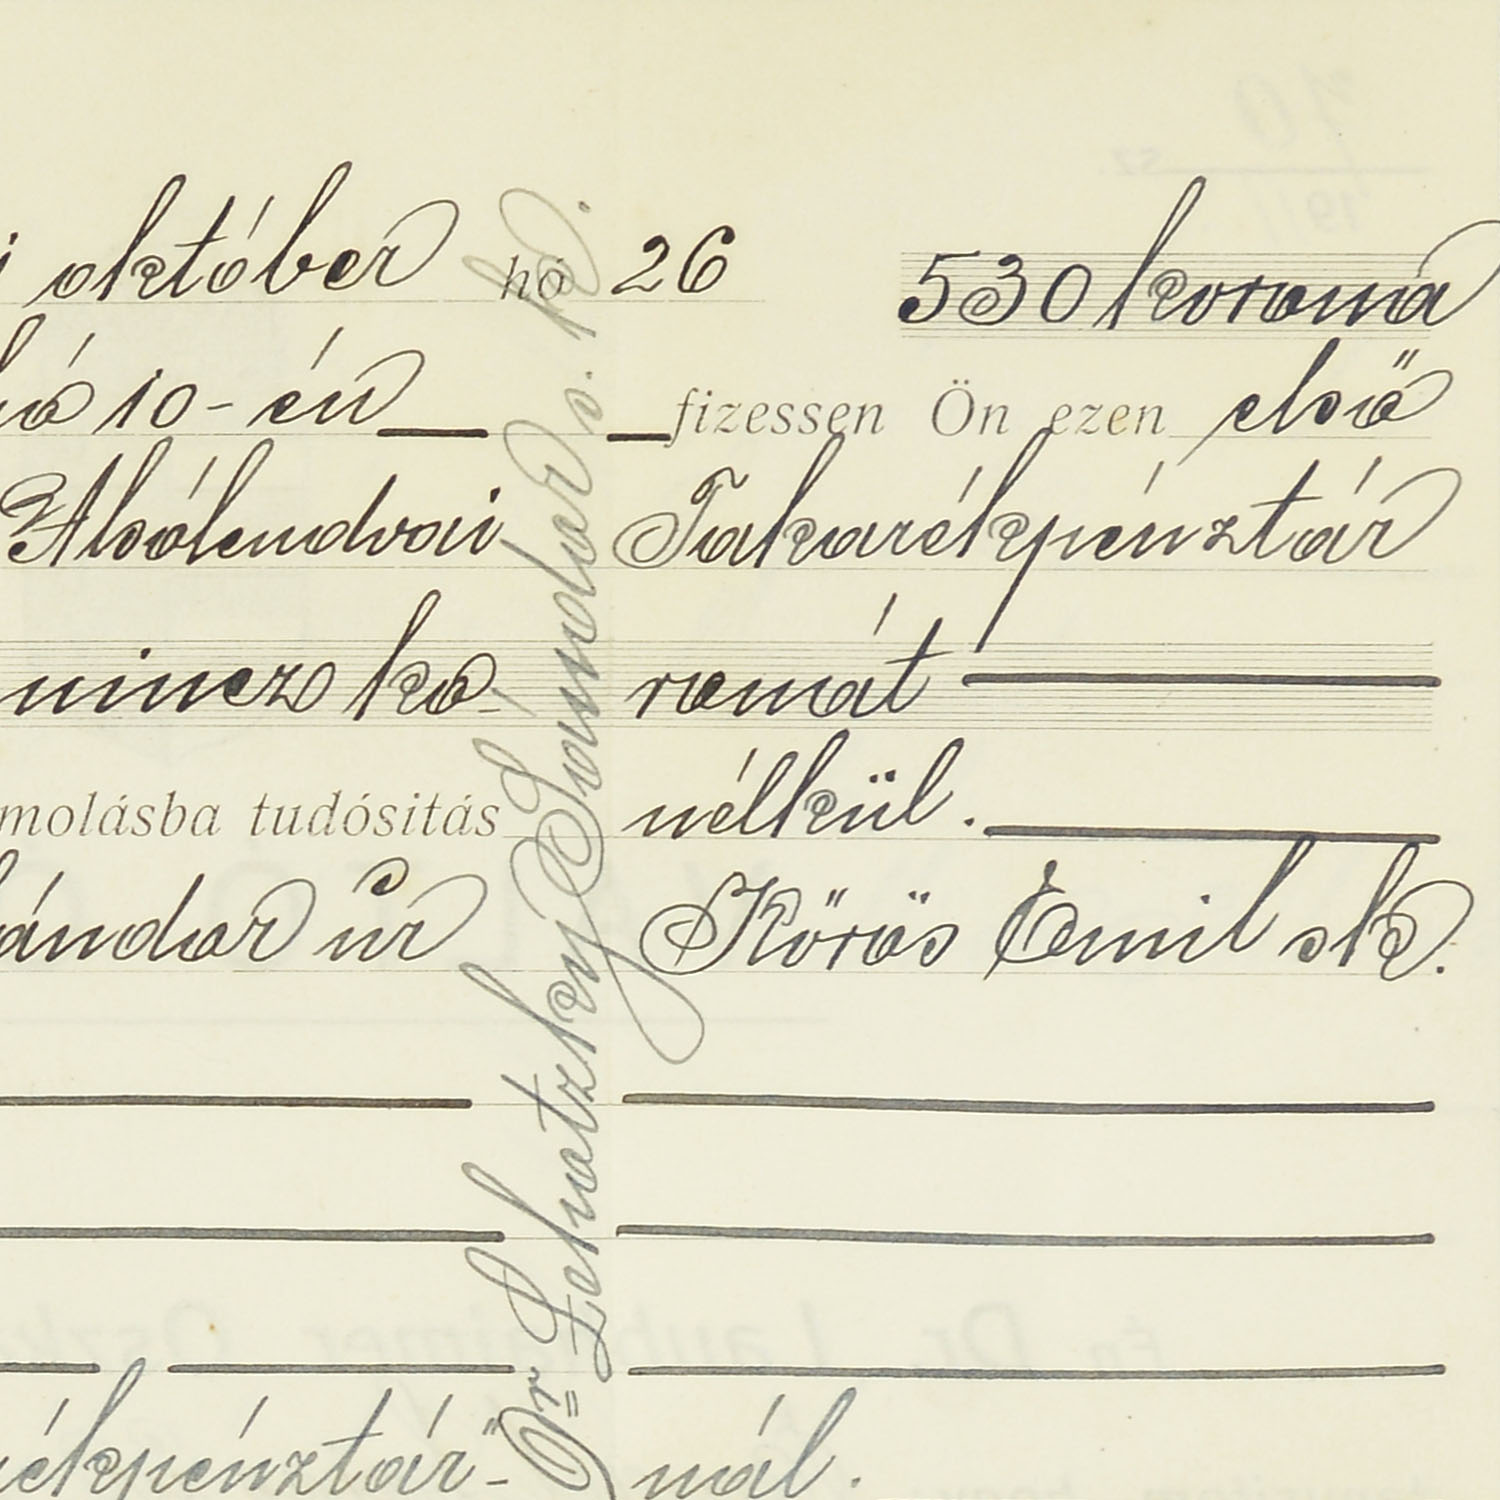 október hó 26 530 korona
10-én fizessen Ön ezen első
Alsólendvai Takarékpénztár
mincz ko- ronát
molásba tudósitás nélkül.
ándor úr Körös Emil sk.
ékpénztár"- nál.
Dr Lehatzkey Sándor s. k.